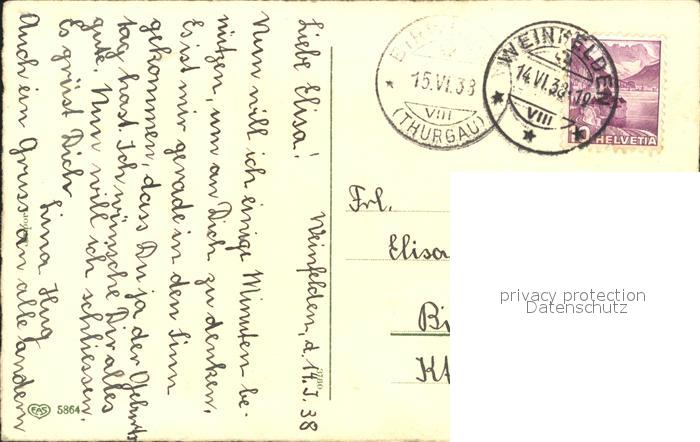 Weinfelden, d. 14.J. 38
Liebe Elisa!
Nun will ich einige Minuten be-
nützen, um an Dich zu denken.
Es ist mir gerade in den Sinn
gekommen, dass Du ja der Geburts
tag hast. Ich wünsche Dir alles
gute. Nun will ich schliessen.
Es grüst Dich
Lina Hug
Auch ein Gruss an alle andern
EAS 5864
15.VI.38
VIII
(THURGAU)
WEINFELDEN
14.VI.38-19
VIII
10 HELVETIA
Frl.
Elisa
Bi
Kt
privacy protection
Datenschutz